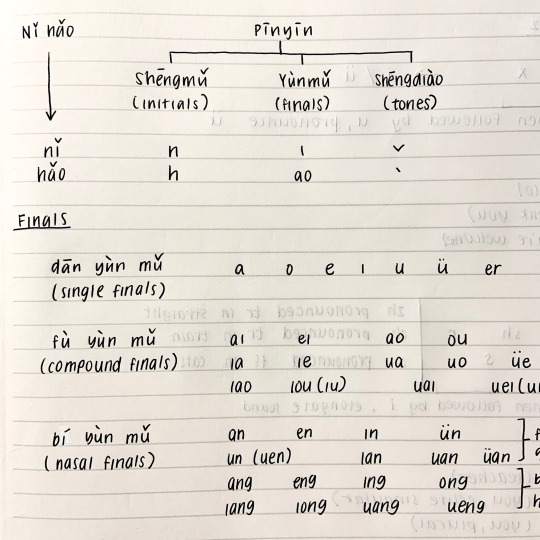 Nǐ hǎo Pīnyīn
Shēngmǔ Yùnmǔ Shēngdiào
(initials) (finals) (tones)
nǐ n i ˇ
hǎo h ao ˋ
Finals
dān yùn mǔ a o e i u ü er
(single finals)
fù yùn mǔ ai ei ao ou
(compound finals) ia ie ua uo üe
iao iou (iu) uai uei (ui
bí yùn mǔ an en in ün
(nasal finals) un (uen) ian uan üan
ang eng ing ong
iang iong uang ueng